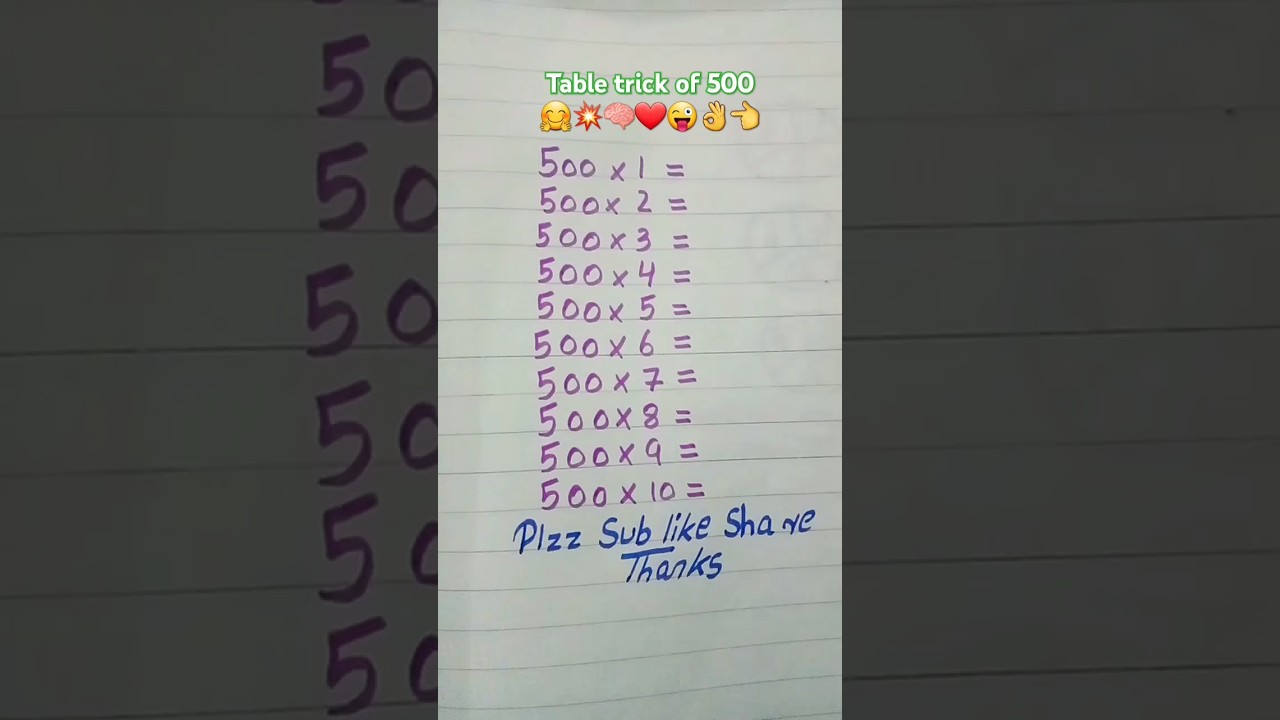 Table trick of 500
🤗💥🧠❤️😜👌👈
500 x 1 =
500 x 2 =
500 x 3 =
500 x 4 =
500 x 5 =
500 x 6 =
500 x 7 =
500 x 8 =
500 x 9 =
500 x 10 =
Plzz Sub like Share
Thanks